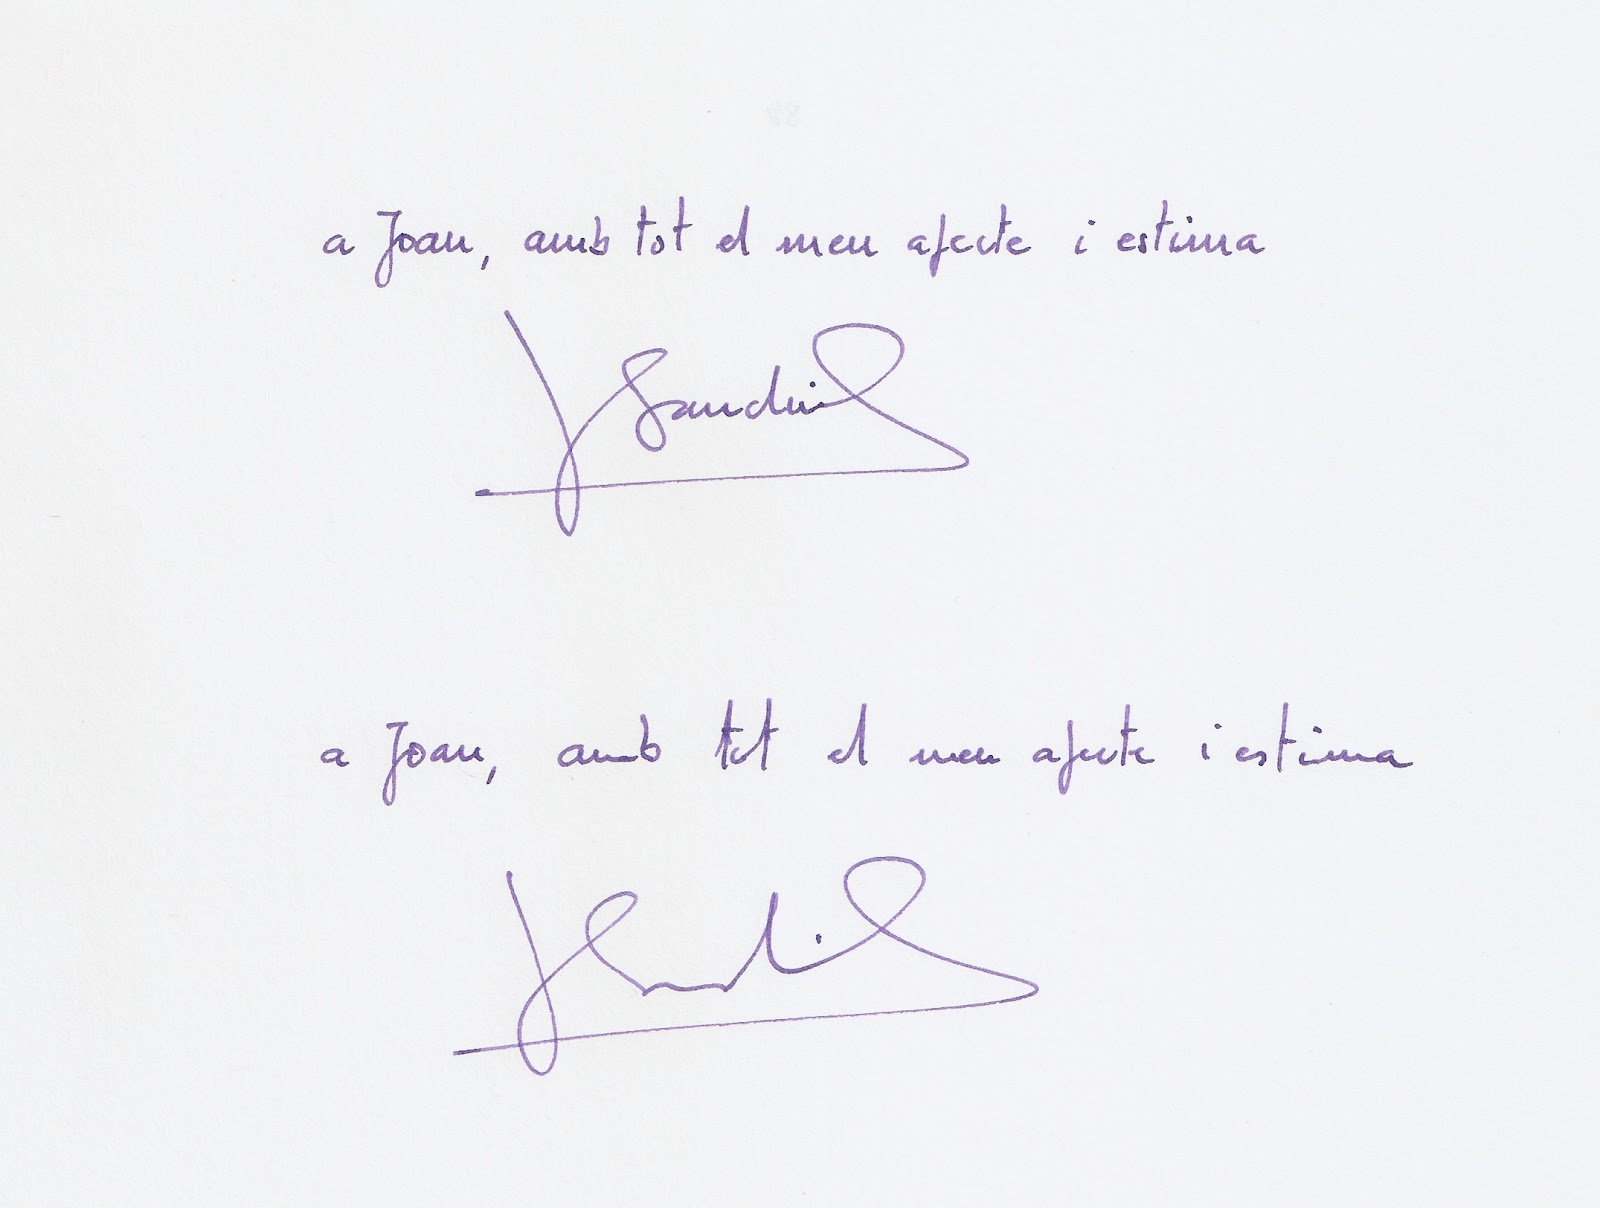 a Joan, amb tot el meu afecte i estima
a Joan, amb tot el meu afecte i estima